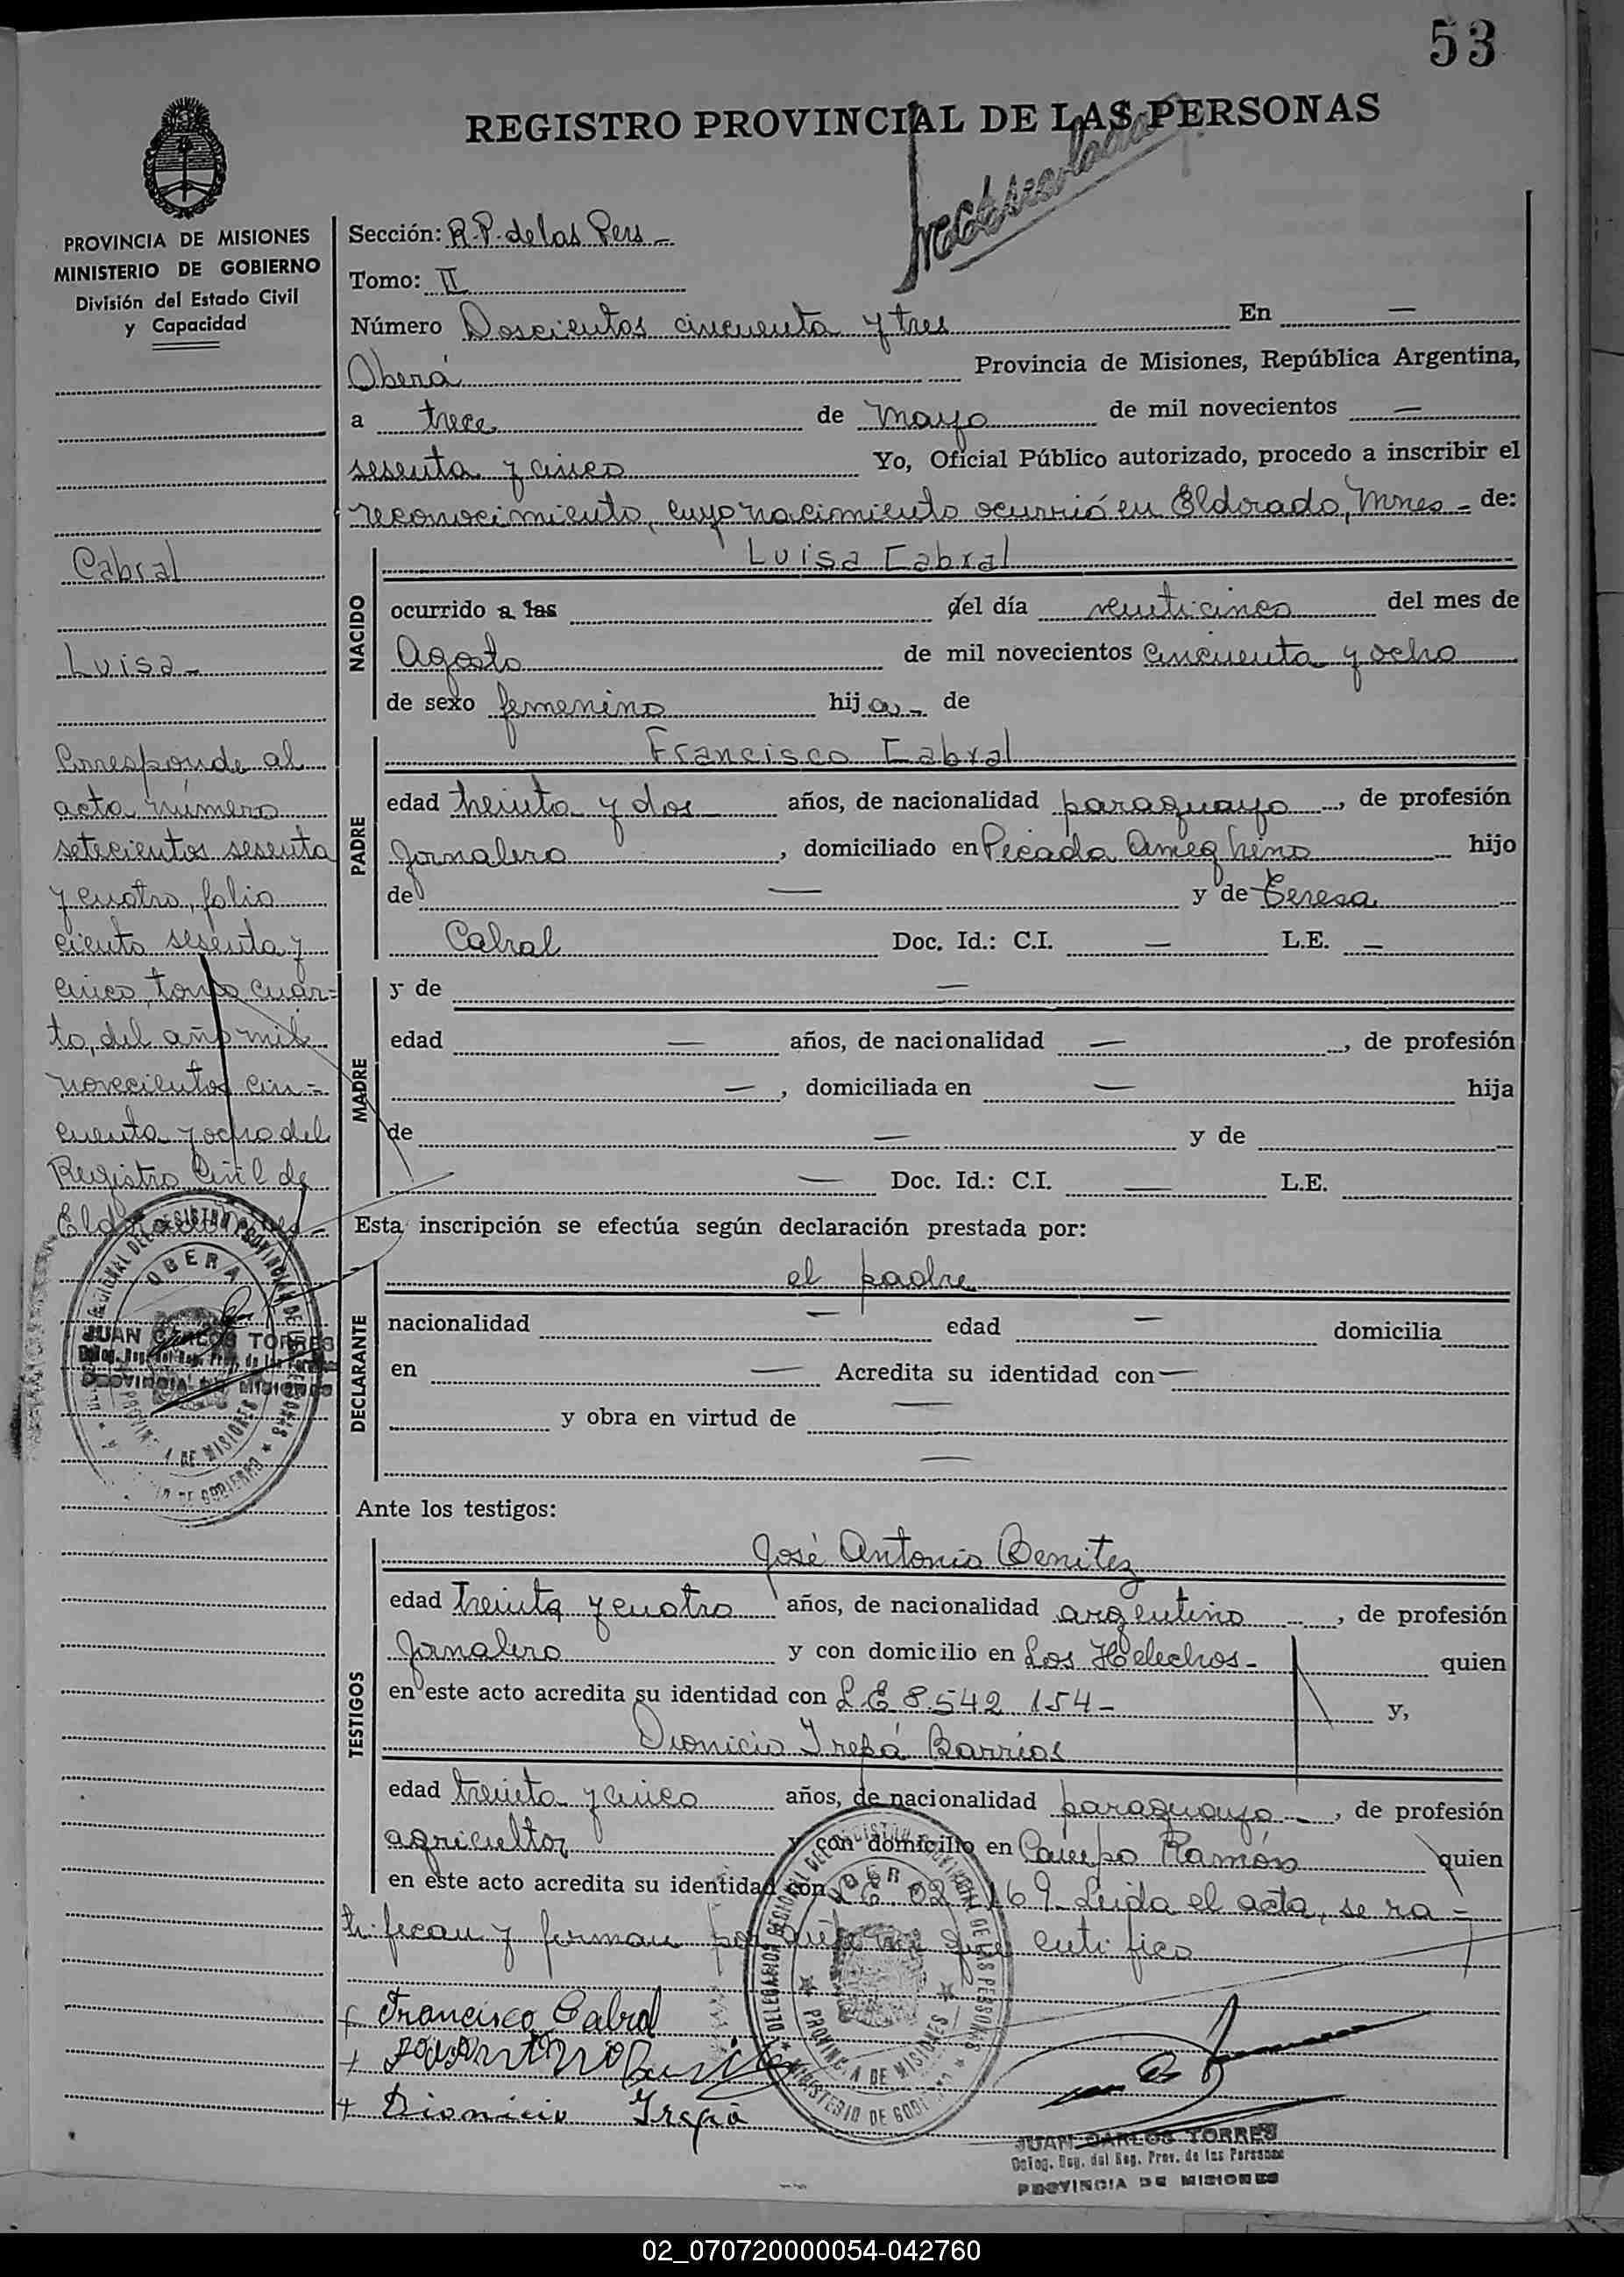 53
REGISTRO PROVINCIAL DE LAS PERSONAS
PROVINCIA DE MISIONES
MINISTERIO DE GOBIERNO
División del Estado Civil
y Capacidad
Cabral
Luisa -
Corresponde al
acta número
setecientos sesenta
y cuatro, folio
ciento sesenta y
cinco, tomo cuar=
to, del año mil
novecientos cin=
cuenta y ocho del
Registro Civil de
OBERA
JUAN CARLOS TORRES
PROVINCIA DE MISIONES
Sección: R.P. de las Pers -
Tomo: II
Número Doscientos cincuenta y tres En —
Oberá Provincia de Misiones, República Argentina,
a trece de Mayo de mil novecientos —
sesenta y cinco Yo, Oficial Público autorizado, procedo a inscribir el
reconocimiento, cuyo nacimiento ocurrió en Eldorado, Mnes - de:
NACIDO
Luisa Cabral
ocurrido a las del día veinticinco del mes de
Agosto de mil novecientos cincuenta y ocho
de sexo femenino hija - de
PADRE
Francisco Cabral
edad treinta y dos años, de nacionalidad paraguayo -, de profesión
Jornalero, domiciliado en Picada Ameghino hijo
de — y de Teresa
Cabral Doc. Id.: C.I. — L.E. —
MADRE
y de —
edad — años, de nacionalidad —, de profesión
—, domiciliada en — hija
de — y de
— Doc. Id.: C.I. — L.E.
Esta inscripción se efectúa según declaración prestada por:
DECLARANTE
el padre
nacionalidad — edad — domicilia
en — Acredita su identidad con —
y obra en virtud de —
—
Ante los testigos:
TESTIGOS
José Antonio Benitez
edad treinta y cuatro años, de nacionalidad argentino -, de profesión
Jornalero y con domicilio en Los Helechos - quien
en este acto acredita su identidad con L.E 8.542.154 - y,
Dionicio Trepá Barrios
edad treinta y cinco años, de nacionalidad paraguayo -, de profesión
agricultor y con domicilio en Campo Ramón quien
en este acto acredita su identidad con Leida el acta, se ra -
tifican y firman por ante mi que certifico
Francisco Cabral
Dionicio Trepá
PROVINCIA DE MISIONES
MINISTERIO DE GOBIERNO
JUAN CARLOS TORRES
Deleg. Reg. del Reg. Prov. de las Personas
PROVINCIA DE MISIONES
02_070720000054-042760